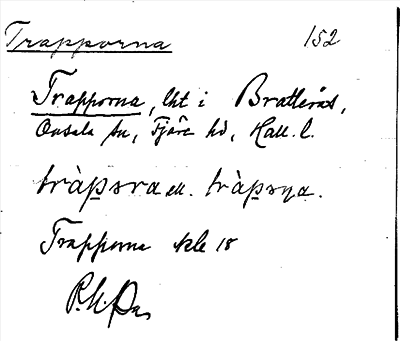 Trapporna 152
Trapporna, lht i Bratteråt,
Onsala sn, Fjäre hd, Hall. l.
tràpsra ell. tràpsɳa.
Trapporna kbl 18